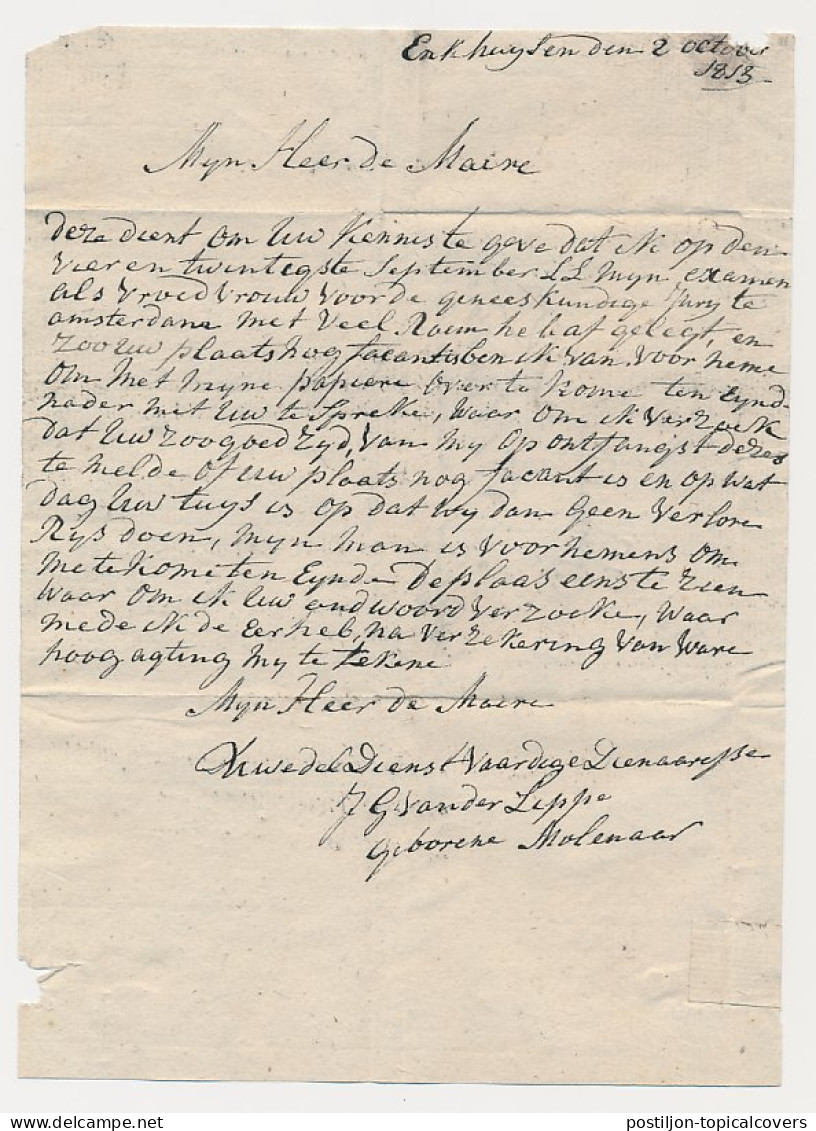 Enkhuysen den 2 october
1813
Myn Heer de Maire
deze dient om Uw Kennis te geve dat ik op den
vier en twintegste September LL myn examen
als vroedvrouw voor de geneeskundige Jury te
amsterdam met veel Roem heb af gelegt, en
zoo Uw plaats nog facant is ben ik van voorneme
om met myne papiere over te kome ten Eynd
nader met Uw te Spreke, waar om ik verzoek
dat Uw zoo goed zyd, van my op ontfangst dezes
te melde of uw plaats nog facant is en op wat
dag Uw tuys is op dat wy dan geen verlore
Rys doen, myn man is voornemens om
me te kome ten Eynde De plaas eens te zien
waar om ik Uw andwoord verzoeke, waar
mede ik de Eer heb, na verzekering van ware
hoog agting my te tekene
Myn Heer de Maire
Uwedel Dienst Vaardige Dienaaresse
J G van der Leppe
geborene Molenaar
postiljon-topicalcovers